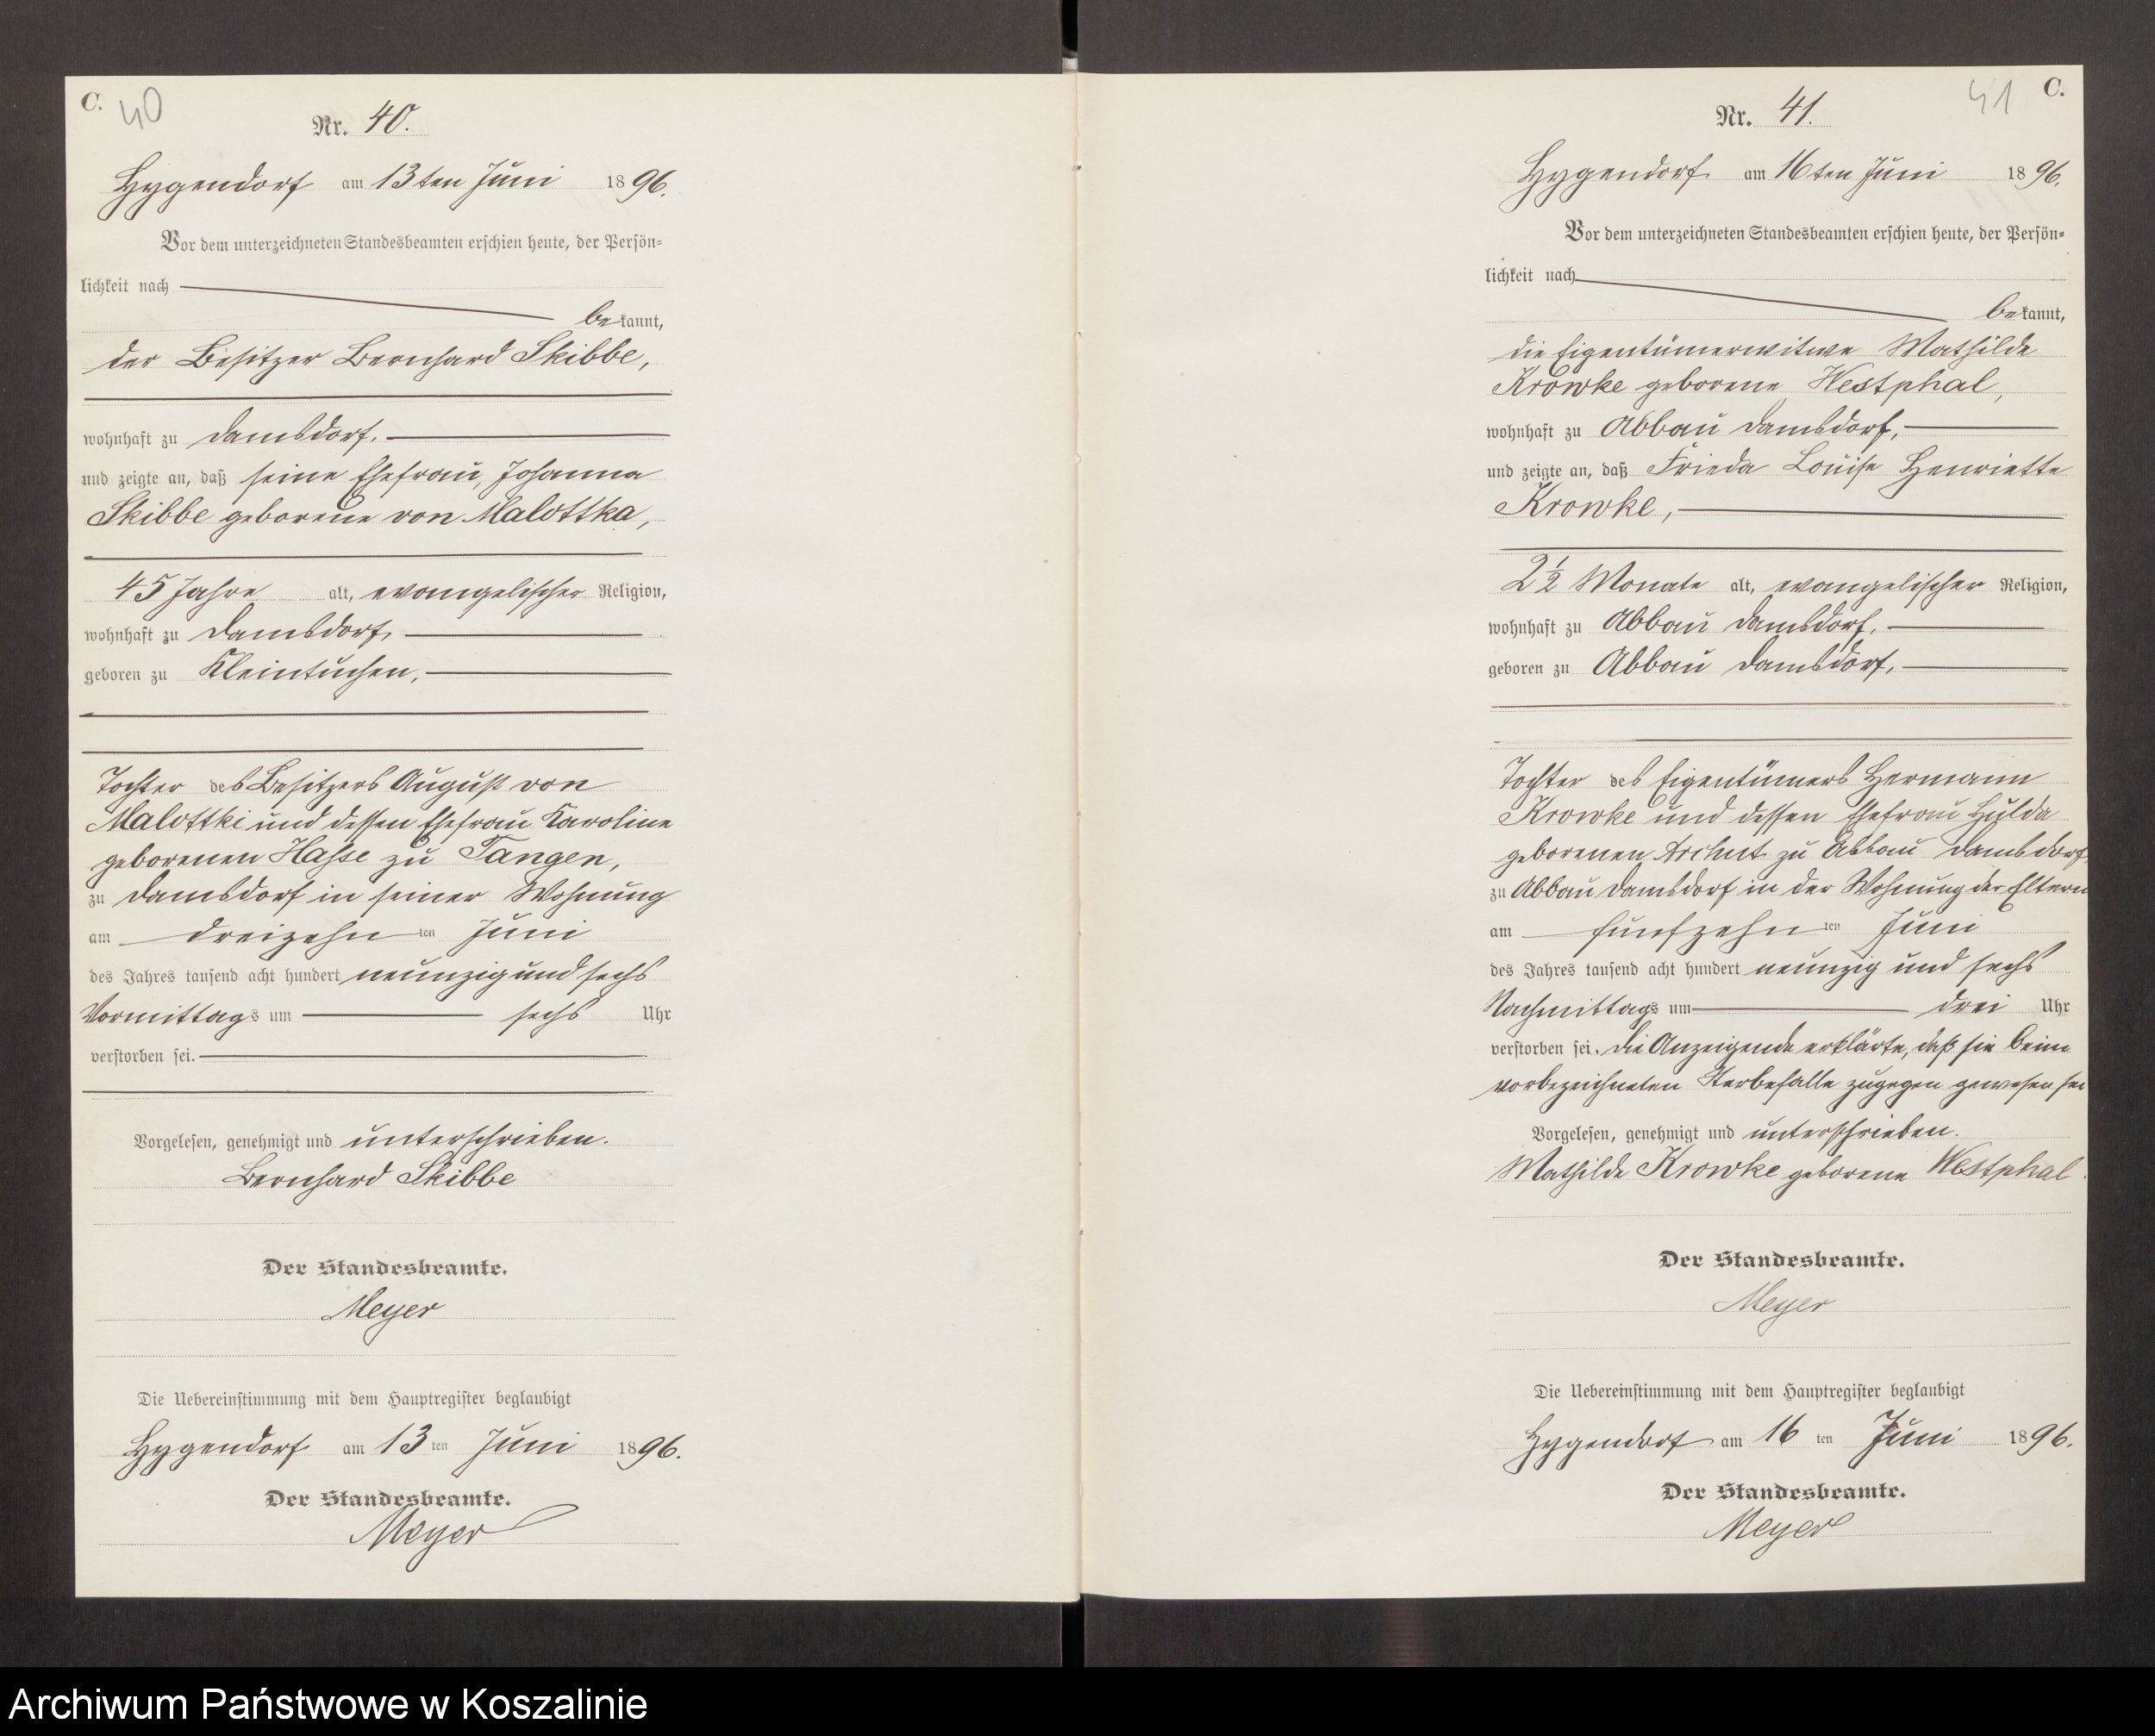 C. 40
Nr. 40.
Hygendorf am 13ten Juni 1896.
Vor dem unterzeichneten Standesbeamten erschien heute, der Persön-
lichkeit nach
bekannt,
der Besitzer Bernhard Skibbe,
wohnhaft zu Damsdorf.
und zeigte an, daß seine Ehefrau, Johanna
Skibbe geborene von Malottka,
45 Jahre alt, evangelischer Religion,
wohnhaft zu Damsdorf,
geboren zu Kleintuchen,
Tochter des Besitzers August von
Malottki und dessen Ehefrau Karoline
geborenen Hasse zu Tangen,
zu Damsdorf in seiner Wohnung
am dreizehn ten Juni
des Jahres tausend acht hundert neunzig und sechs
Vormittags um sechs Uhr
verstorben sei.
Vorgelesen, genehmigt und unterschrieben.
Bernhard Skibbe
Der Standesbeamte.
Meyer
Die Uebereinstimmung mit dem Hauptregister beglaubigt
Hygendorf am 13 ten Juni 1896.
Der Standesbeamte.
Meyer
41 C.
Nr. 41.
Hygendorf am 16ten Juni 1896.
Vor dem unterzeichneten Standesbeamten erschien heute, der Persön-
lichkeit nach
bekannt,
die Eigentümerwitwe Mathilde
Krowke geborene Westphal,
wohnhaft zu Abbau Damsdorf,
und zeigte an, daß Frieda Louise Henriette
Krowke,
2 1/2 Monate alt, evangelischer Religion,
wohnhaft zu Abbau Damsdorf,
geboren zu Abbau Damsdorf,
Tochter des Eigentümers Hermann
Krowke und dessen Ehefrau Hulda
geborenen zu Abbau Damsdorf,
zu Abbau Damsdorf in der Wohnung der Eltern
am fünfzehn ten Juni
des Jahres tausend acht hundert neunzig und sechs
Nachmittags um drei Uhr
verstorben sei. Die Anzeigende erklärte, daß sie beim
vorbezeichneten Sterbefalle zugegen gewesen sei
Vorgelesen, genehmigt und unterschrieben.
Mathilde Krowke geborene Westphal.
Der Standesbeamte.
Meyer
Die Uebereinstimmung mit dem Hauptregister beglaubigt
Hygendorf am 16 ten Juni 1896.
Der Standesbeamte.
Meyer
Archiwum Państwowe w Koszalinie